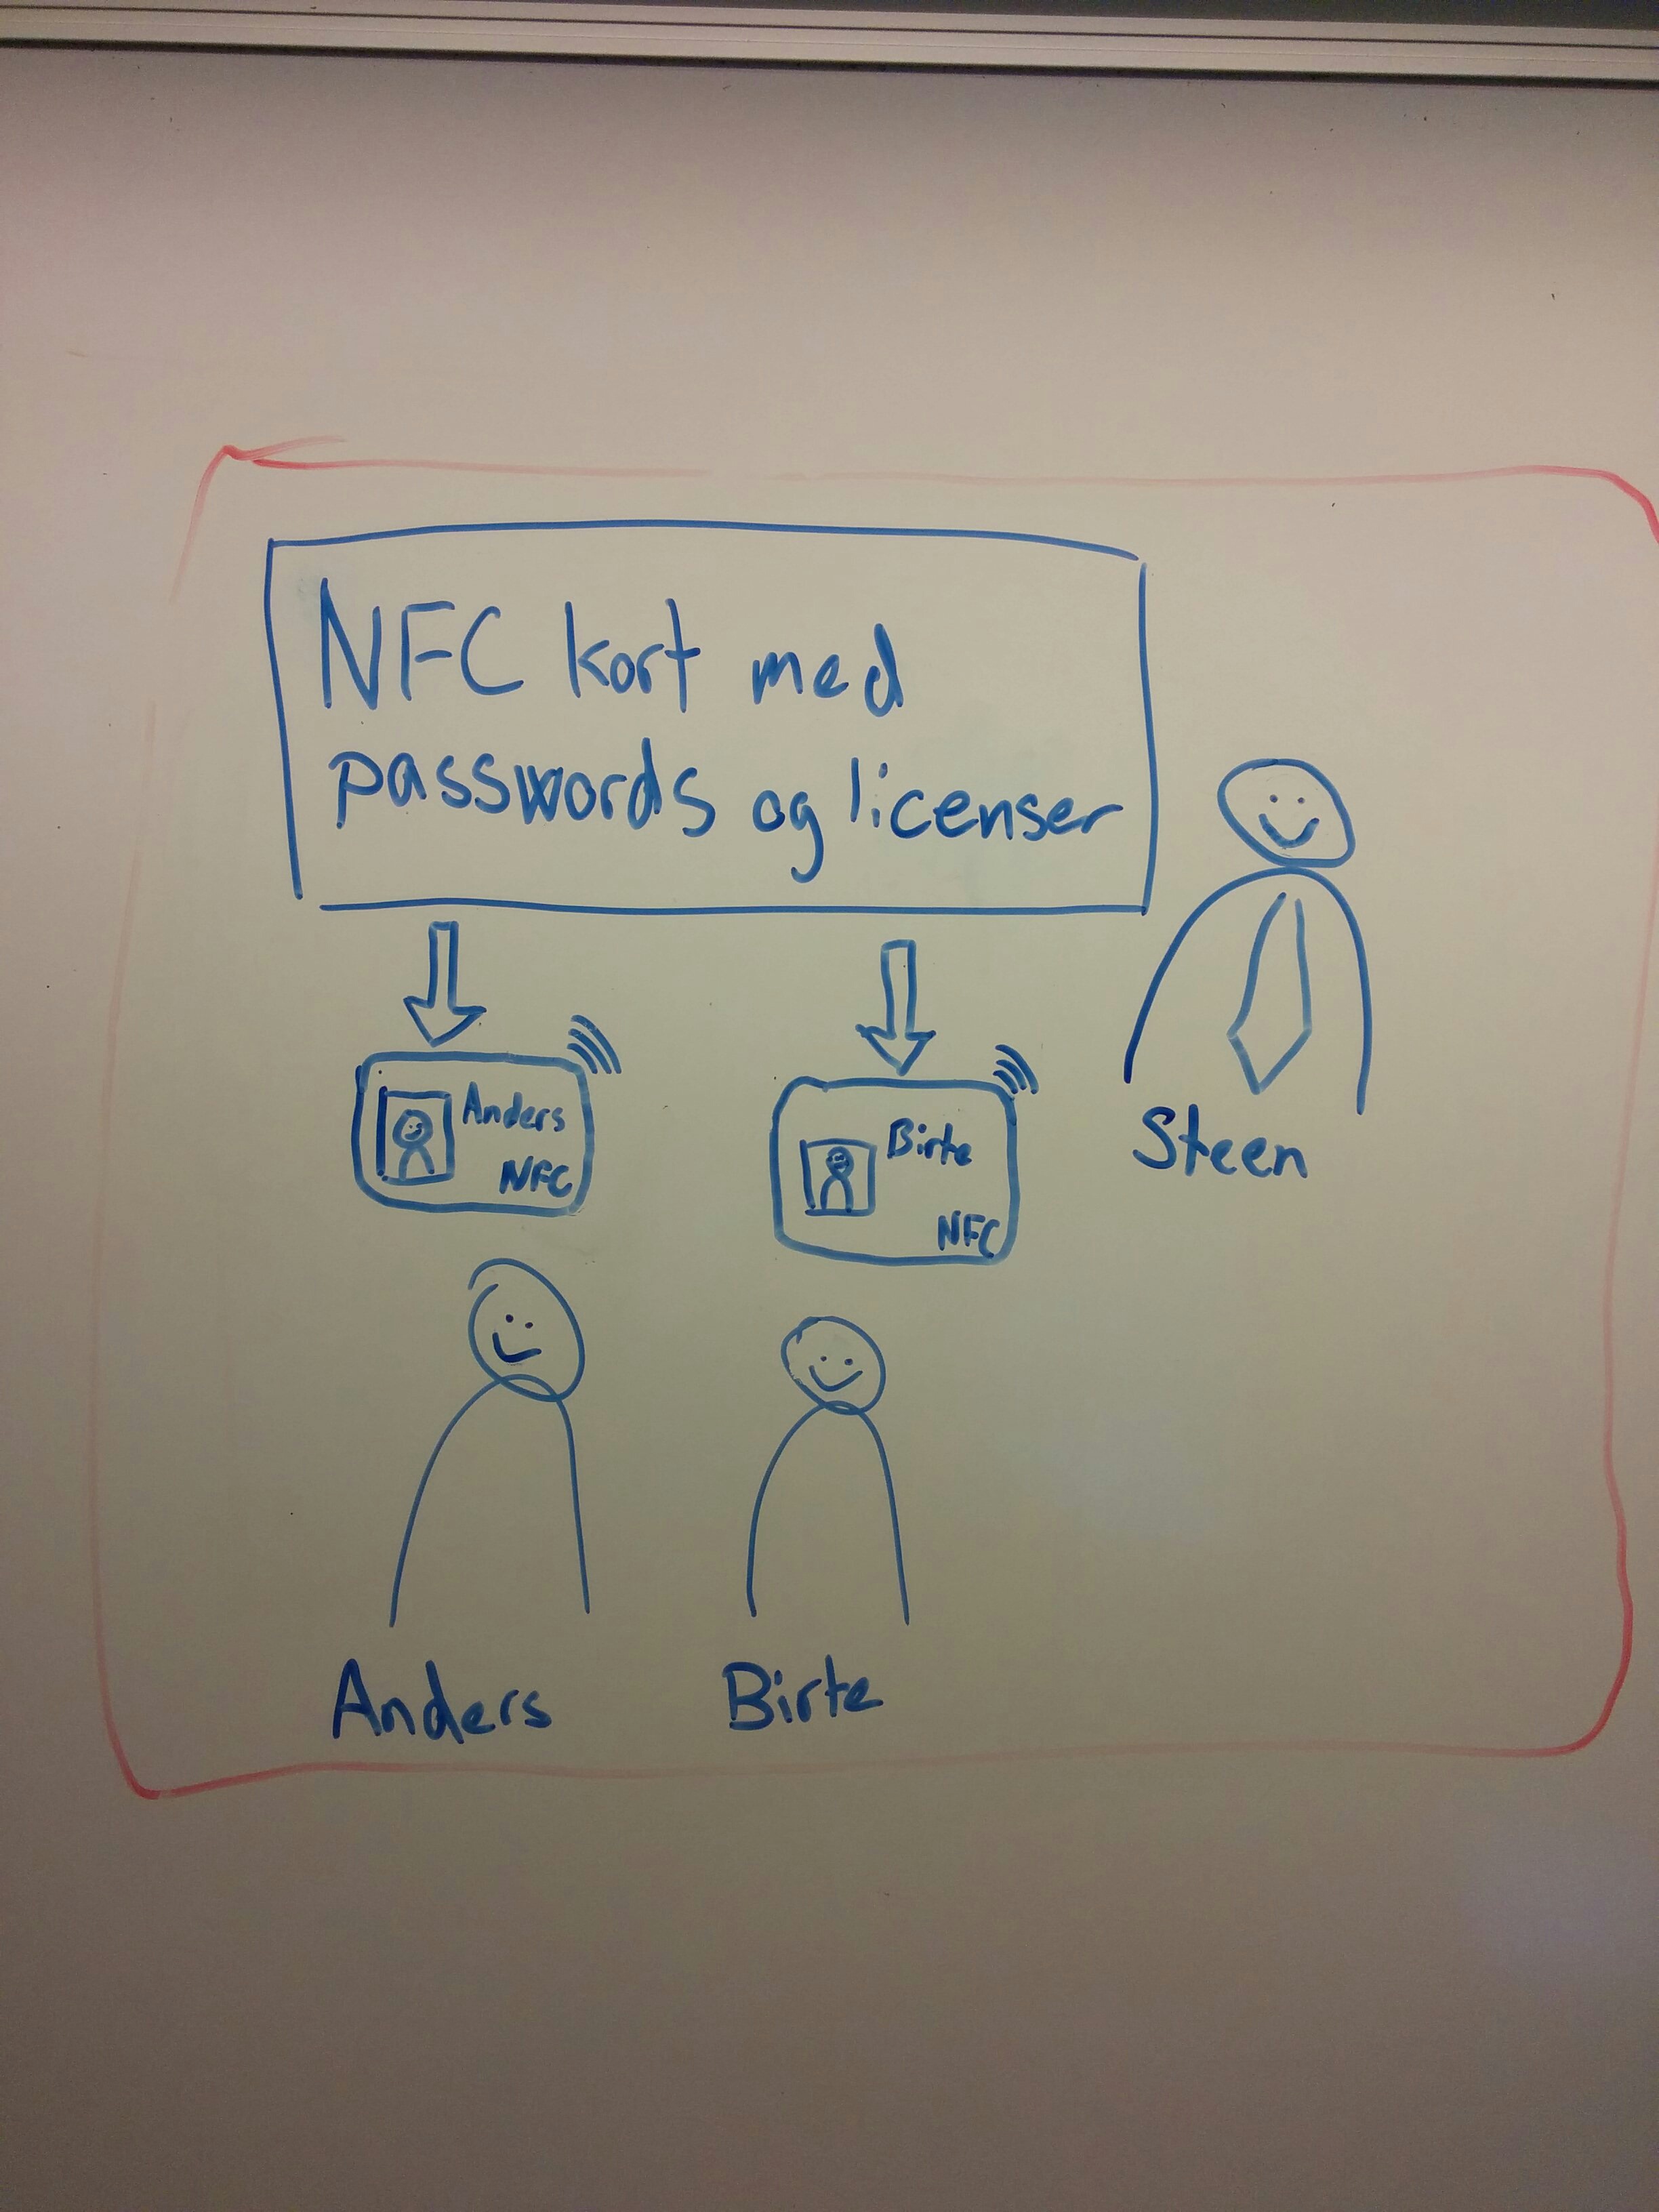 NFC kort med
passwords og licenser
Anders
NFC
Birte
NFC
Steen
Anders
Birte